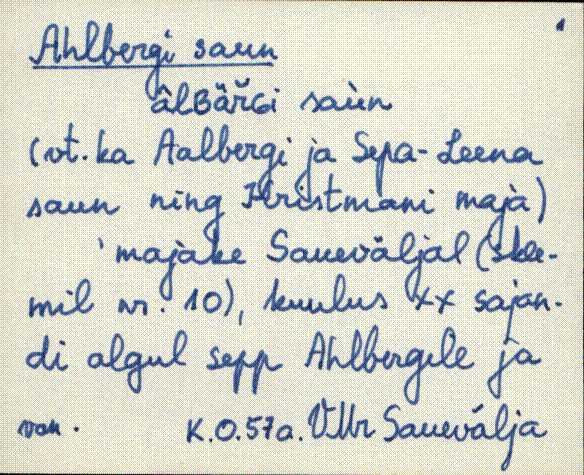 Ahlbergi saun
âlʙär̆ɢi saùn
(vt. ka Aalbergi ja Sepa-Leena
saun ning Kristmani majà)
'majake Saueväljal (skee-
mil nr. 10), kuulus XX sajan-
di algul sepp Ahlbergile ja
van. K.O. 57a. VMr Sauevälja